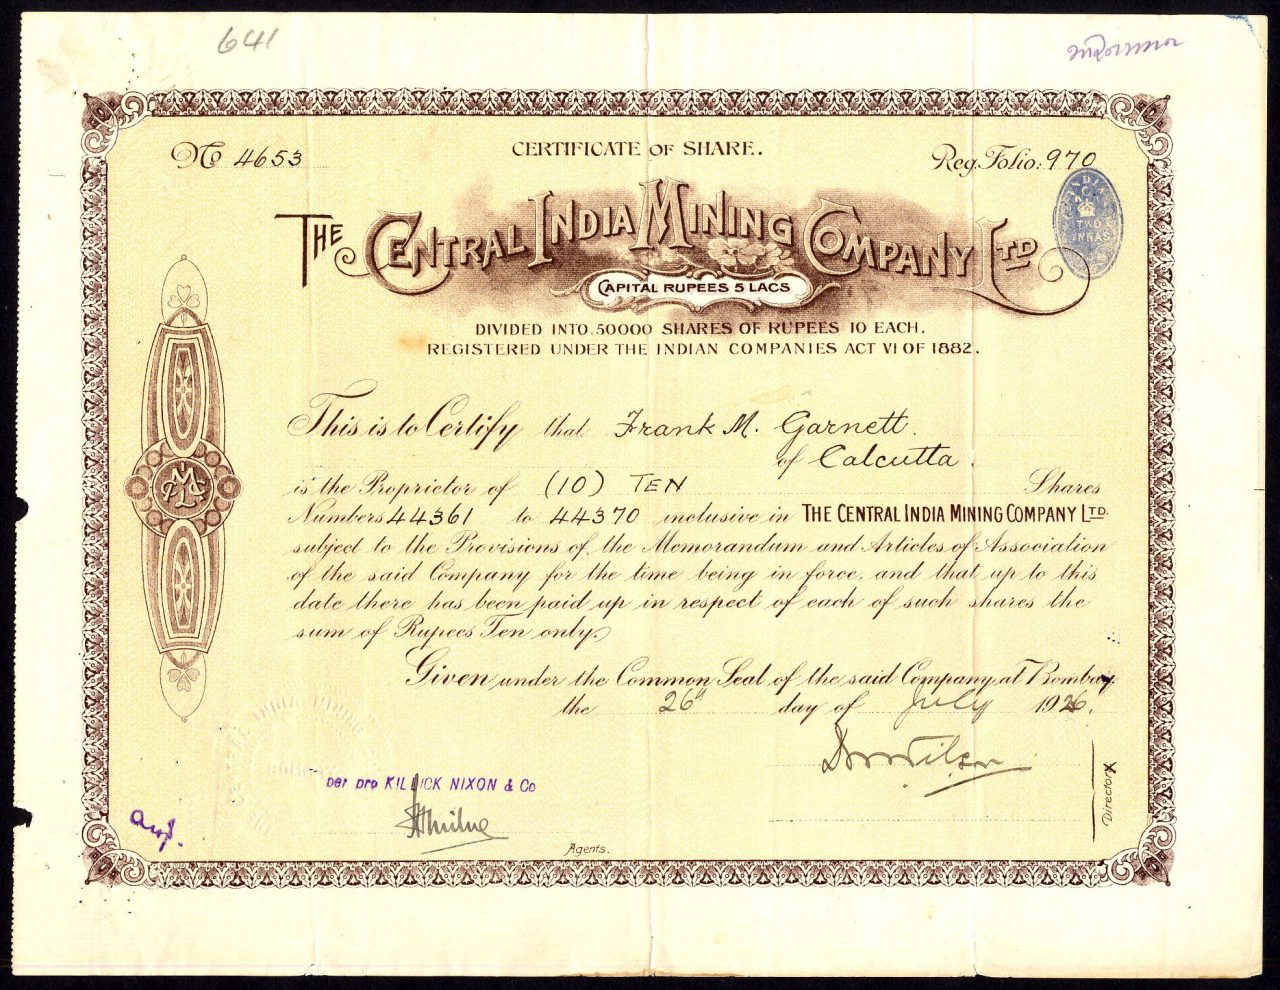 641
No 4653
CERTIFICATE OF SHARE.
Reg. Folio: 970
THE CENTRAL INDIA MINING COMPANY LTD
CAPITAL RUPEES 5 LACS
INDIA
TWO
ANNAS
DIVIDED INTO 50000 SHARES OF RUPEES 10 EACH.
REGISTERED UNDER THE INDIAN COMPANIES ACT VI OF 1882.
This is to Certify that Frank M. Garnett.
of Calcutta.
is the Proprietor of (10) TEN Shares
Numbers 44361 to 44370 inclusive in THE CENTRAL INDIA MINING COMPANY LTD.
subject to the Provisions of the Memorandum and Articles of Association
of the said Company for the time being in force, and that up to this
date there has been paid up in respect of each of such shares the
sum of Rupees Ten only.
Given under the Common Seal of the said Company at Bombay
the 26th day of July 1926.
per pro KILLICK NIXON & Co
Agents.
Director